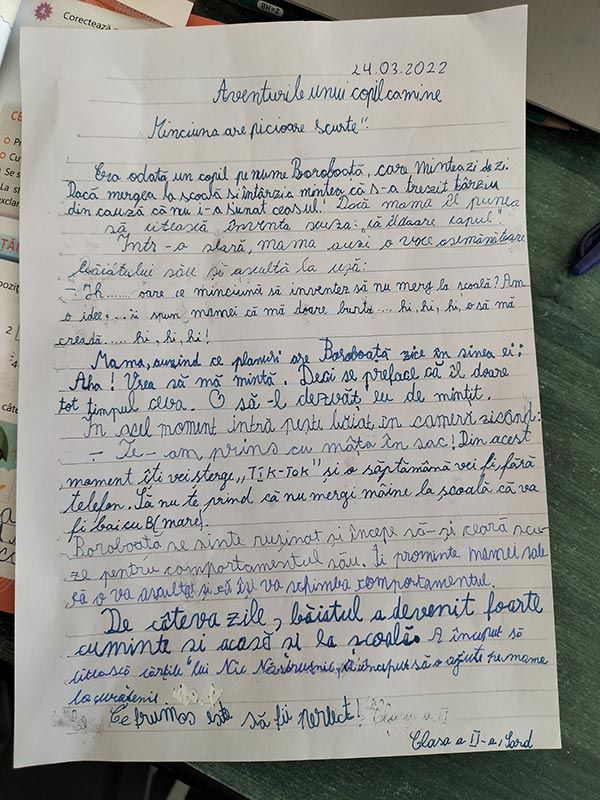 Corectează
24.03.2022
Aventurile unui copil ca mine
„Minciuna are picioare scurte".
Era odată un copil pe nume Boroboață, care mintea zi de zi.
Dacă mergea la școală și întârzia mintea că s-a trezit târziu
din cauză că nu i-a sunat ceasul. Dacă mama îl punea
să citească inventa scuza: „ îl doare capul".
Într-o seară, mama auzi o voce asemănătoare
băiatului său și ascultă la ușă:
- H...... oare ce minciună să inventez să nu merg la scoală? Am
o idee.... îi spun mamei că mă doare burta.... hi, hi, hi, o să mă
creadă .... hi, hi, hi!
Mama, auzind ce planuri are Boroboață zice în sinea ei:
Aha! Vrea să mă mintă. Deci se preface că îl doare
tot timpul ceva. O să-l dezvăț eu de mințit.
În acel moment intră peste băiat în cameră zicând:
- Te-am prins cu mâța în sac! Din acest
moment îți vei șterge „Tik-Tok" și o săptămână vei fi fără
telefon. Să nu te prind că nu mergi mâine la școală că va
fi bai cu B(mare).
Boroboață se simte rușinat și începe să-și ceară scu-
ze pentru comportamentul său. Îi prominte mamei sale
că o va asculta și că își va schimba comportamentul.
De câteva zile, băiatul a devenit foarte
cuminte și acasă și la școală. A început să
citească cărțile lui Nic Năstrușnic, a început să o ajute pe mama
la curățenie.
Ce frumos este să fii perfect! Clasa a II
Clasa a II-a, Șard